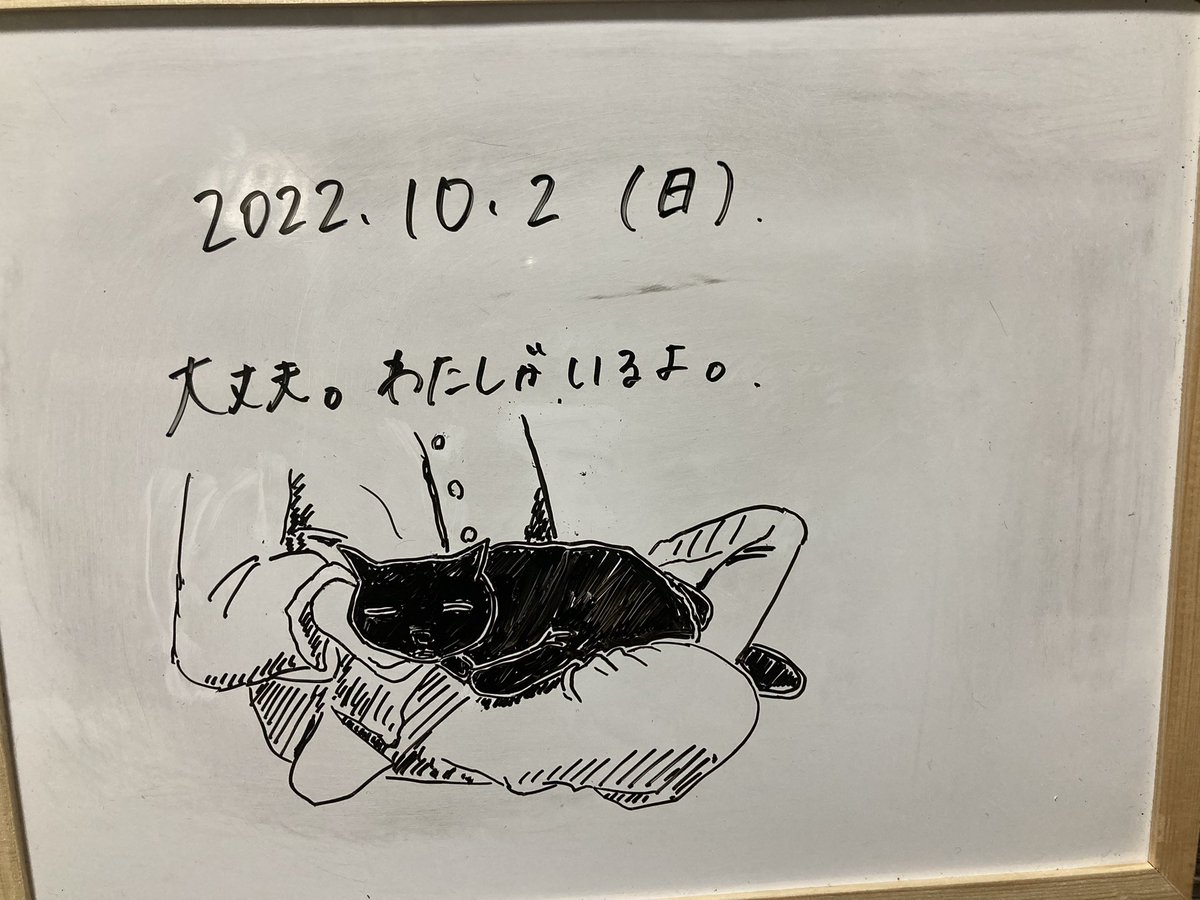 2022.10.2 (日).
大丈夫。わたしがいるよ。.